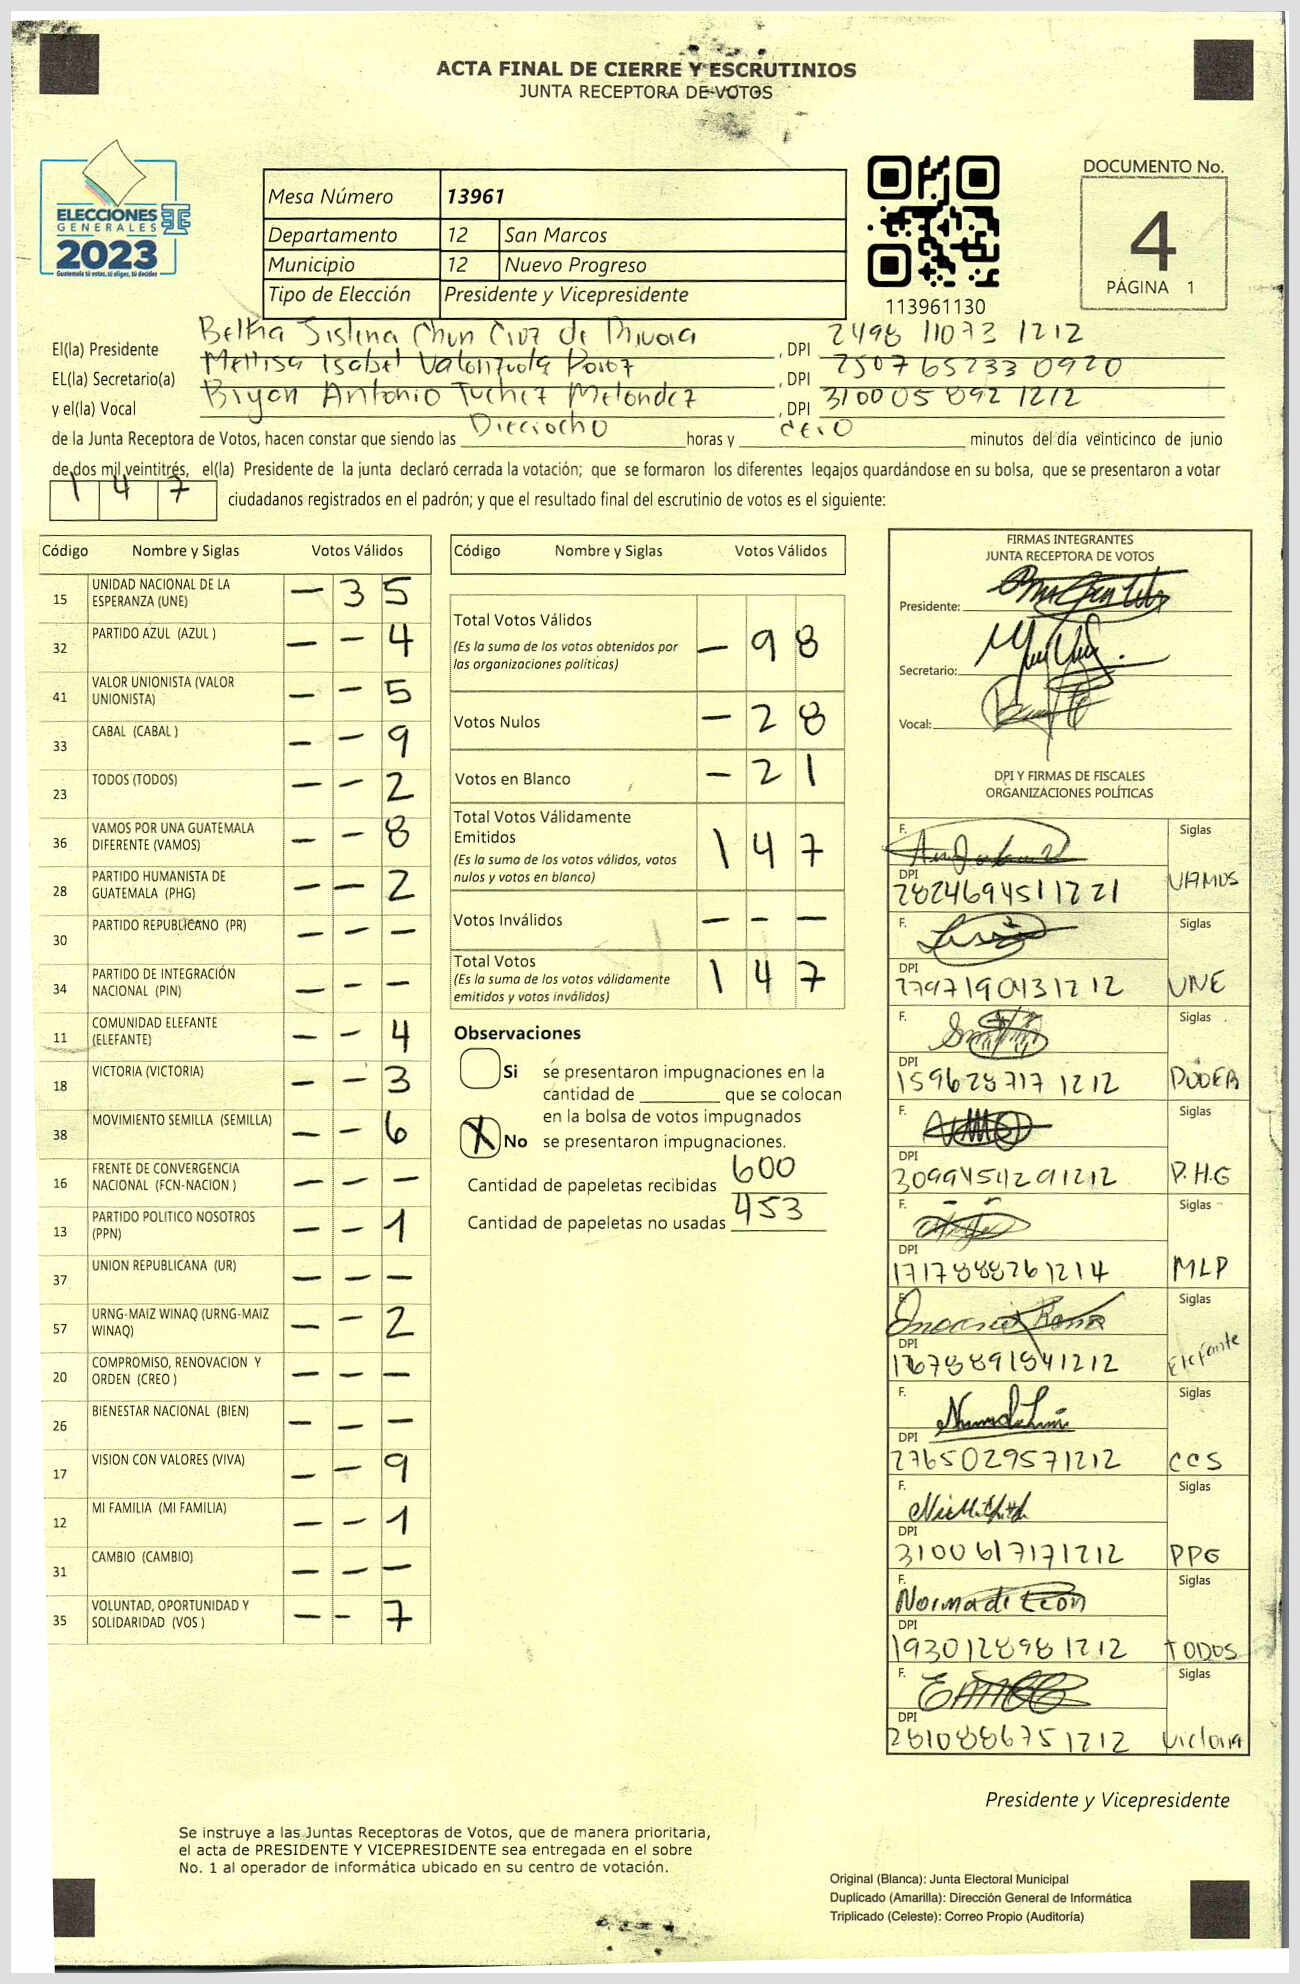 ACTA FINAL DE CIERRE Y ESCRUTINIOS
JUNTA RECEPTORA DE VOTOS
ELECCIONES
GENERALES
2023
Guatemala tú votas, tú eliges, tú decides
Mesa Número 13961
Departamento 12 San Marcos
Municipio 12 Nuevo Progreso
Tipo de Elección Presidente y Vicepresidente
113961130
DOCUMENTO No.
4
PÁGINA 1
El(la) Presidente Chun Cruz de , DPI 2498 11073 1212
EL(la) Secretario(a) Isabel , DPI 2507 65233 0920
y el(la) Vocal Bryan Antonio Tuchez Melendez , DPI 3100058921212
de la Junta Receptora de Votos, hacen constar que siendo las Dieciocho horas y cero minutos del día veinticinco de junio
de dos mil veintitrés, el(la) Presidente de la junta declaró cerrada la votación; que se formaron los diferentes legajos quardándose en su bolsa, que se presentaron a votar
1 4 7 ciudadanos registrados en el padrón; y que el resultado final del escrutinio de votos es el siguiente:
Código Nombre y Siglas Votos Válidos
15 UNIDAD NACIONAL DE LA ESPERANZA (UNE) – 3 5
32 PARTIDO AZUL (AZUL ) – – 4
41 VALOR UNIONISTA (VALOR UNIONISTA) – – 5
33 CABAL (CABAL ) – – 9
23 TODOS (TODOS) – – 2
36 VAMOS POR UNA GUATEMALA DIFERENTE (VAMOS) – – 8
28 PARTIDO HUMANISTA DE GUATEMALA (PHG) – – 2
30 PARTIDO REPUBLICANO (PR) – – –
34 PARTIDO DE INTEGRACIÓN NACIONAL (PIN) – – –
11 COMUNIDAD ELEFANTE (ELEFANTE) – – 4
18 VICTORIA (VICTORIA) – – 3
38 MOVIMIENTO SEMILLA (SEMILLA) – – 6
16 FRENTE DE CONVERGENCIA NACIONAL (FCN-NACION ) – – –
13 PARTIDO POLITICO NOSOTROS (PPN) – – 1
37 UNION REPUBLICANA (UR) – – –
57 URNG-MAIZ WINAQ (URNG-MAIZ WINAQ) – – 2
20 COMPROMISO, RENOVACION Y ORDEN (CREO ) – – –
26 BIENESTAR NACIONAL (BIEN) – – –
17 VISION CON VALORES (VIVA) – – 9
12 MI FAMILIA (MI FAMILIA) – – 1
31 CAMBIO (CAMBIO) – – –
35 VOLUNTAD, OPORTUNIDAD Y SOLIDARIDAD (VOS ) – – 7
Código Nombre y Siglas Votos Válidos
Total Votos Válidos – 9 8
(Es la suma de los votos obtenidos por
las organizaciones políticas)
Votos Nulos – 2 8
Votos en Blanco – 2 1
Total Votos Válidamente
Emitidos 1 4 7
(Es la suma de los votos válidos, votos
nulos y votos en blanco)
Votos Inválidos – – –
Total Votos 1 4 7
(Es la suma de los votos válidamente
emitidos y votos inválidos)
Observaciones
Si se presentaron impugnaciones en la
cantidad de ________ que se colocan
en la bolsa de votos impugnados
X No se presentaron impugnaciones.
Cantidad de papeletas recibidas 600
Cantidad de papeletas no usadas 453
FIRMAS INTEGRANTES
JUNTA RECEPTORA DE VOTOS
Presidente:
Secretario:
Vocal:
DPI Y FIRMAS DE FISCALES
ORGANIZACIONES POLÍTICAS
F. Siglas
DPI
2824694511221 VAMOS
F. Siglas
DPI
2797190431212 UNE
F. Siglas
DPI
1596287171212 PODER
F. Siglas
DPI
3099454291212 P.H.G
F. Siglas
DPI
1717888261214 MLP
F. Siglas
DPI
Elefante
F. Siglas
DPI
2765029571212 CCS
F. Siglas
DPI
3100617171212 PPG
F. Norma de León Siglas
DPI
1930128981212 TODOS
F. Siglas
DPI
2810886751212 Victoria
Presidente y Vicepresidente
Se instruye a las Juntas Receptoras de Votos, que de manera prioritaria,
el acta de PRESIDENTE Y VICEPRESIDENTE sea entregada en el sobre
No. 1 al operador de informática ubicado en su centro de votación.
Original (Blanca): Junta Electoral Municipal
Duplicado (Amarilla): Dirección General de Informática
Triplicado (Celeste): Correo Propio (Auditoría)